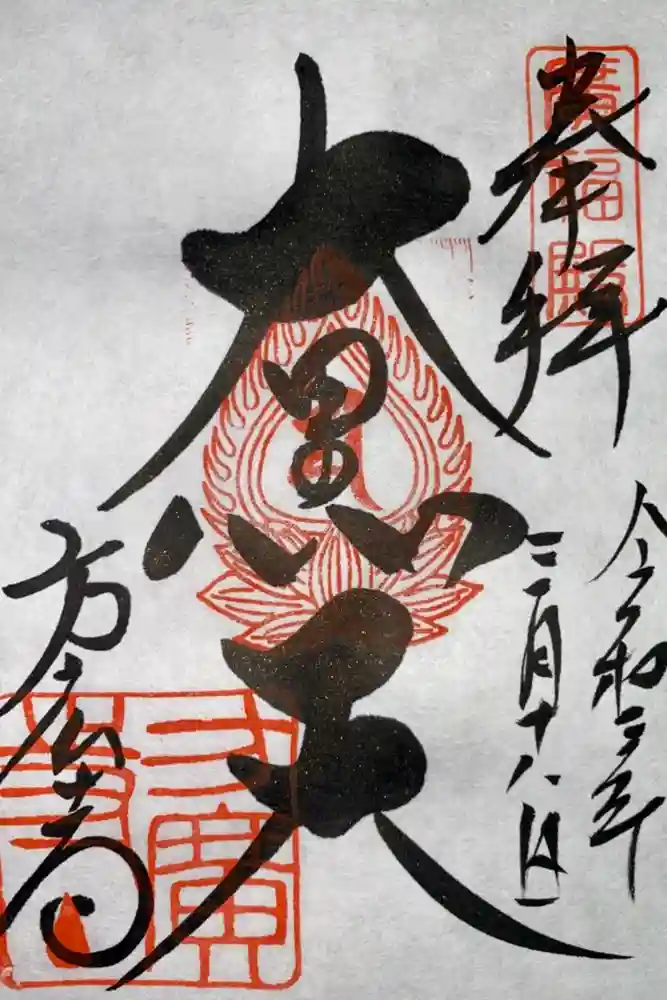 奉拝
令和三年
三月十八日
大黒天
方広寺
方廣